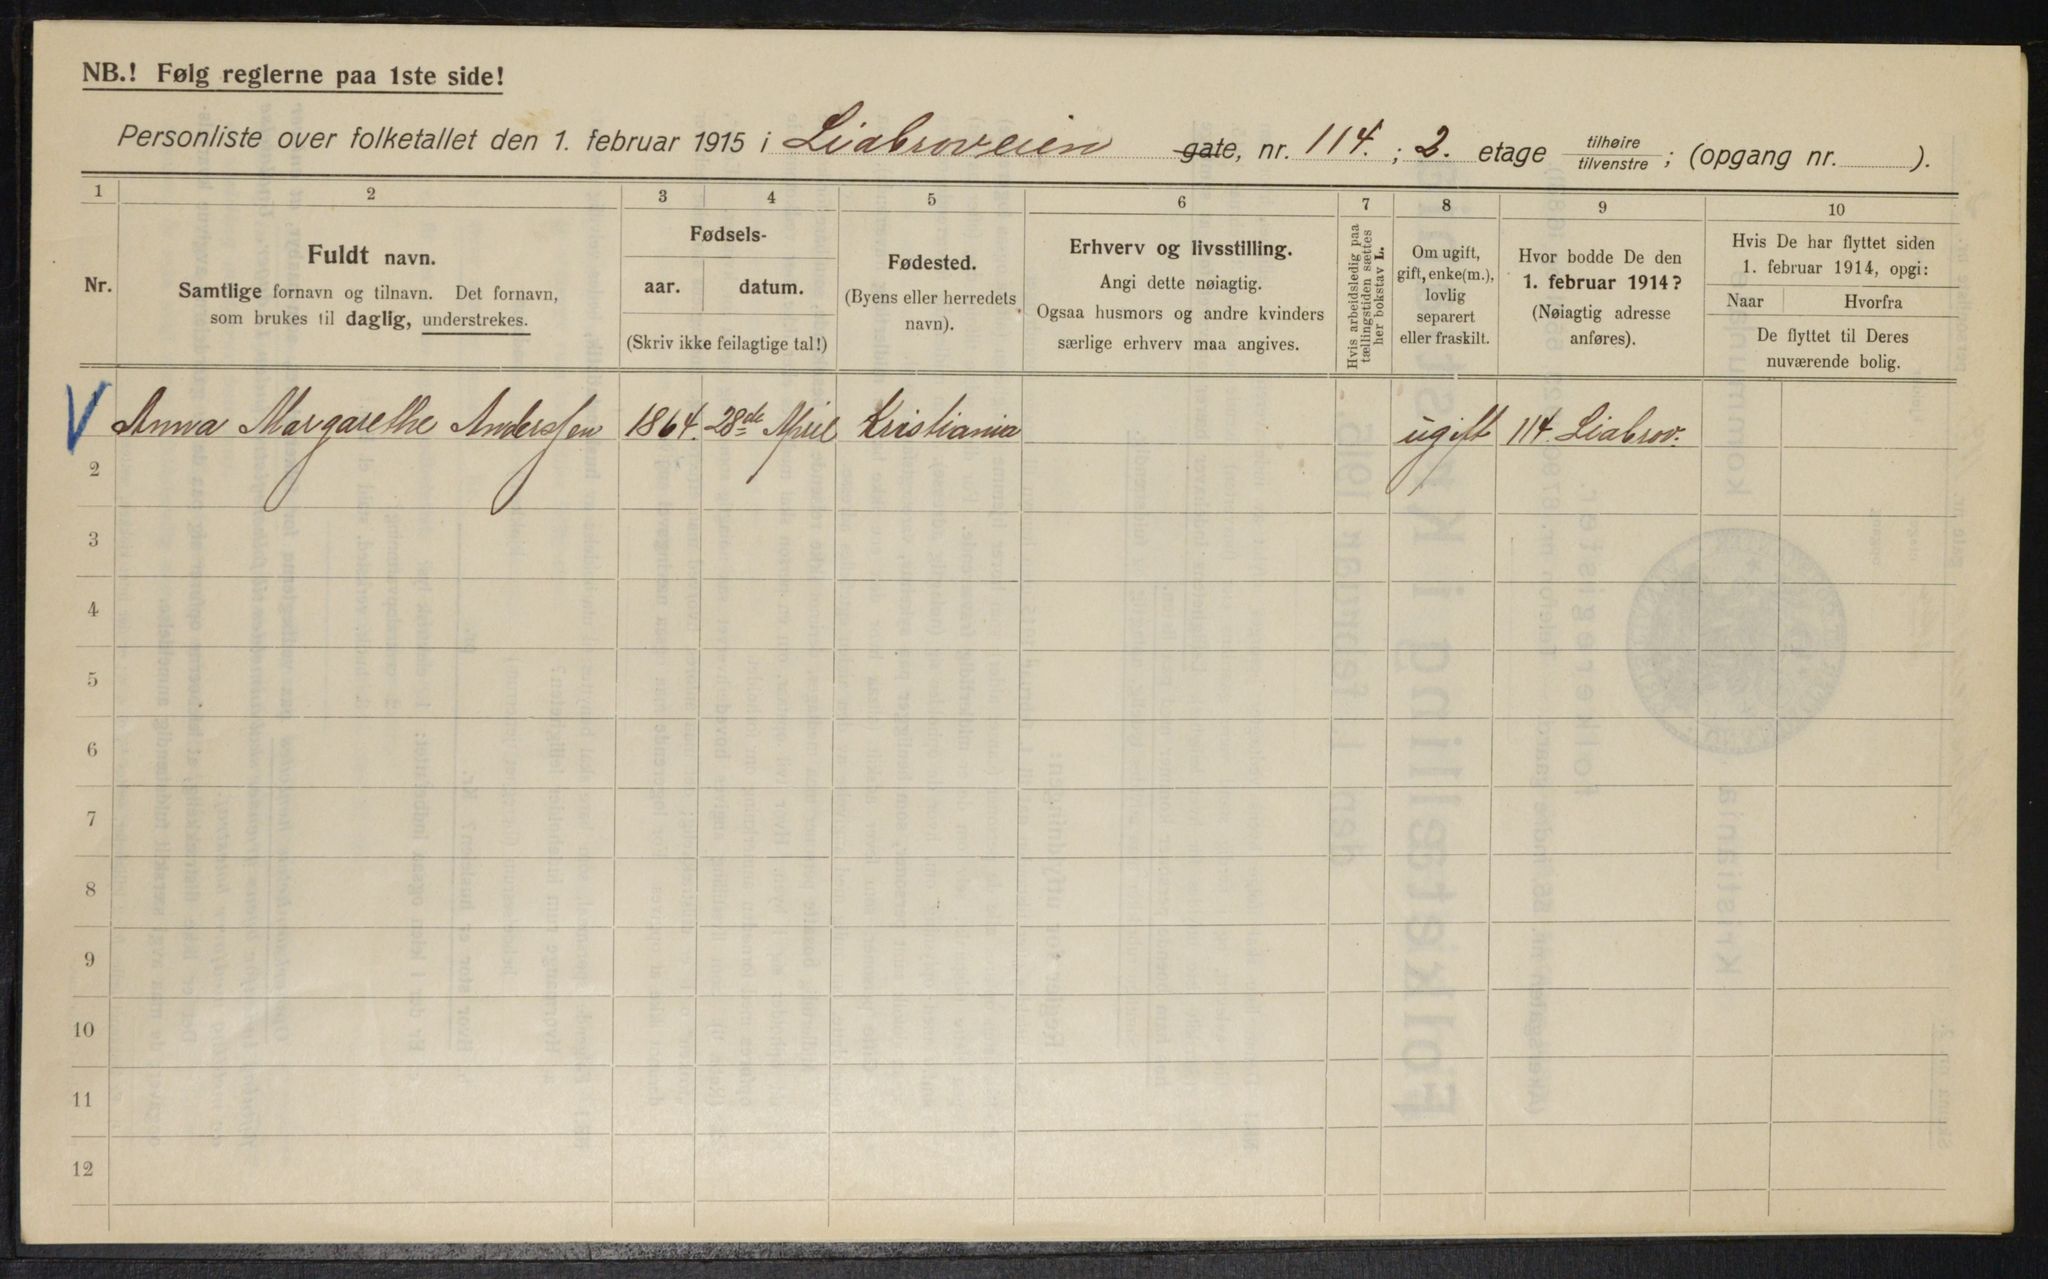 NB.! Følg reglerne paa 1ste side!
Personliste over folketallet den 1. februar 1915 i Liabroveien gate, nr. 114. ; 2. etage tilhøire tilvenstre ; (opgang nr. ).
1 2 3 4 5 6 7 8 9 10
Nr.
Fuldt navn.
Samtlige fornavn og tilnavn. Det fornavn,
som brukes til daglig, understrekes.
Fødsels-
aar. datum.
(Skriv ikke feilagtige tal!)
Fødested.
(Byens eller herredets
navn).
Erhverv og livsstilling.
Angi dette nøiagtig.
Ogsaa husmors og andre kvinders
særlige erhverv maa angives.
Hvis arbeidsledig paa
tællingstiden sættes
her bokstav L.
Om ugift,
gift, enke(m.),
lovlig
separert
eller fraskilt.
Hvor bodde De den
1. februar 1914?
(Nøiagtig adresse
anføres).
Hvis De har flyttet siden
1. februar 1914, opgi:
Naar Hvorfra
De flyttet til Deres
nuværende bolig.
Anna Margarethe Anderssen 1864. 28de April Kristiania ugift 114 Liabrov.
2
3
4
5
6
7
8
9
10
11
12